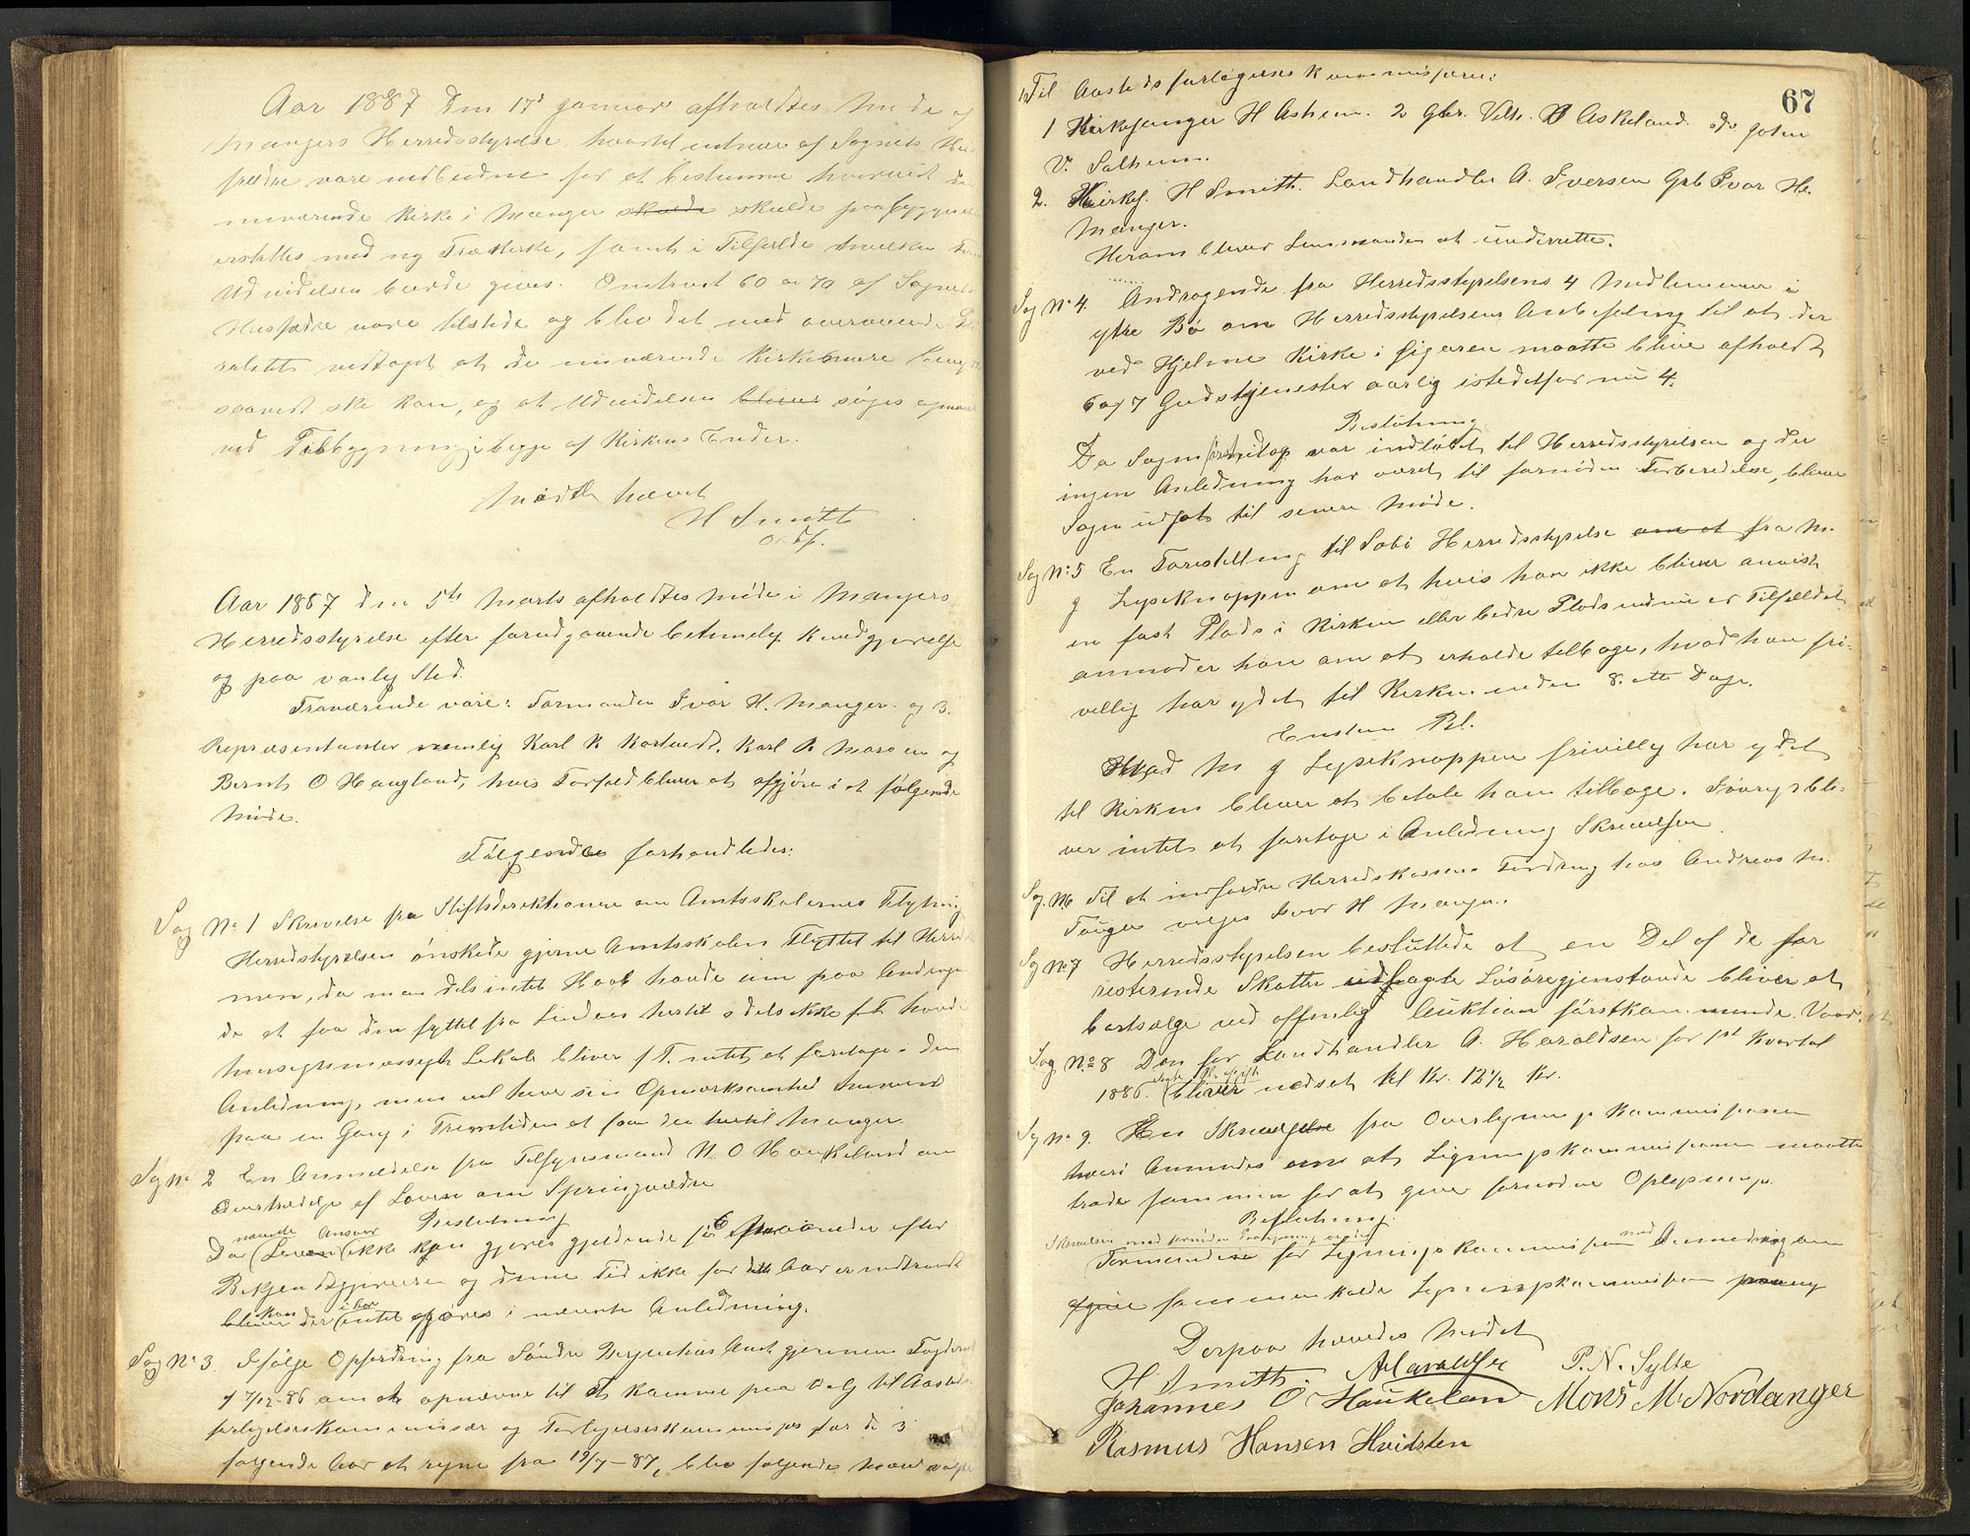 Aar 1887 den 17d Januar afholdtes Møde af
Mangers Herredsstyrelse hvortil enhver af Sognets Hus-
fædre vare indbudne for at bestemme hvorvidt den
nuværende Kirke i Manger skulde skulde paabygges eller
erstattes med ny Trækirke, samt i Tilfælde hvilken
Udvidelsen burde gives. Omtrent 60 a 70 af Sognets
Husfædre vare tilstede og blev det med overveiende
vedtaget at de nuværende Kirkemure
saavidt ske kan, og at Udvidelsen bliver søges
ved Tilbygning i begge af Kirkens Ender.
Mødet hævet
H Smith
Ordf.
Aar 1887 den 5te Marts afholdtes Møde i Mangers
Herredsstyrelse efter forudgaaende betimelig Kundgjørelse
og paa vanlig Sted.
Fraværende vare: Formanden Ivar H. Manger og 3.
Repræsentanter nemlig Karl K Kartveit, Karl R Marøen og
Bernt O Haugland, hvis Forfald bliver at afgjøre i et følgende
Møde.
Følgende forhandledes:
Sag No 1 Skrivelse fra Stiftsdirektionen om Amtsskolernes Flytning
Herredsstyrelsen ønskede gjerne Amtsskolen flyttet til Herredet
men, da man dels intet Haab havde om paa Andragen-
de at faa den flyttet fra Lindaas hertil og dels ikke p. T. havde
hensigtsmæssigt Lokale bliver p T. intet at foretage i den
Anledning, men vil have sin Opmærksomhed henvend
paa en Gang i Fremtiden at faa den hertil Manger
Sag No 2 En Anmeldelse fra Tilsynsmand N. O Haukeland om
Overtrædelse af Loven om Springvædre
Beslutning
nævnte Ansvar
Da Loven ikke kan gjøres gjeldende før 6 Maaneder efter
Bekjendtgjørelsen og denne Tid ikke for dette Aar er udrundt
kan i Aar
bliver der intet afgjøres i nævnte Anledning.
Sag No 3. Ifølge Opfordring fra Søndre Bergenhus Amt gjennem Fogden
af 7/12-86 om at opnævne til at komme paa Valg til Aasteds
forligelseskommissær og Forligelseskommission for de 3
følgende Aar at regne fra 19/7-87, blev følgende Mænd valgte
67
Til Aastedsforligelseskommissærer:
1 Kirkesanger H Askem. 2 Gbr. Askeland
V. Solheim.
2. Kirkes. H Smith. Landhandler A. Iversen Gbr Ivar H.
Manger.
Herom bliver Lensmanden at underrette.
Sag No 4. Andragende fra Herredsstyrelsens 4 Medlemmer i
ytre Bø om Herredsstyrelsens Anbefaling til at der
ved Hjelme Kirke i Ligeren maatte blive afholdt
6 og 7 Gudstjenester aarlig istedetfor nu 4.
Beslutning
Da Sagen var indløbet til Herredsstyrelsen og der
ingen Anledning har været til fornøden Forberedelse, bliver
Sagen udsat til senere Møde.
Sag No 5 En Forestilling til Sæbø Herredsstyrelse om at fra M.
J Lyseknappen om at hvis han ikke bliver anvist
en fast Plads i Kirken eller bedre Plads end nu er Tilfældet
anmoder han om at erholde tilbage, hvad han fri-
villig har ydet til Kirken inden 8. otte Dage.
Enstem. Bl.
Hvad M J Lyseknappen frivillig har ydet
til Kirken bliver at betale ham tilbage. Iøvrigt bli-
ver intet at foretage i Anledning Skrivelsen
Sag. No 6 Til at indfordre Herredskassens Fordring hos Andreas M.
Tougen vælges Ivar H Manger.
Sag No 7 Herredsstyrelsen besluttede at en Del af de for
resterende Skatter udpagte Løsøregjenstande bliver at
bortsælge ved offentlig Auktion førstkommende Vaar.
Sag No 8 Den for Landhandler A. Haraldsen for 1st Kvartal
1886. bliver nedsat til Kr. 12 1/2 Kr.
Sag No 9. En Skrivelse fra Overligningskommissionen
hvori Anmodes om at Ligningskommissionen maatte
træde sammen for at give fornødne Oplysninger.
Beslutning
Formanden for Ligningskommissionen Anmodning om
at give sammenkalde Ligningskommissionen
Derpaa hævedes Mødet
H Smith. A Haraldsen P. N. Sylte
Johannes O Haukeland Mons M. Nordanger
Rasmus Hansen Hvidsten